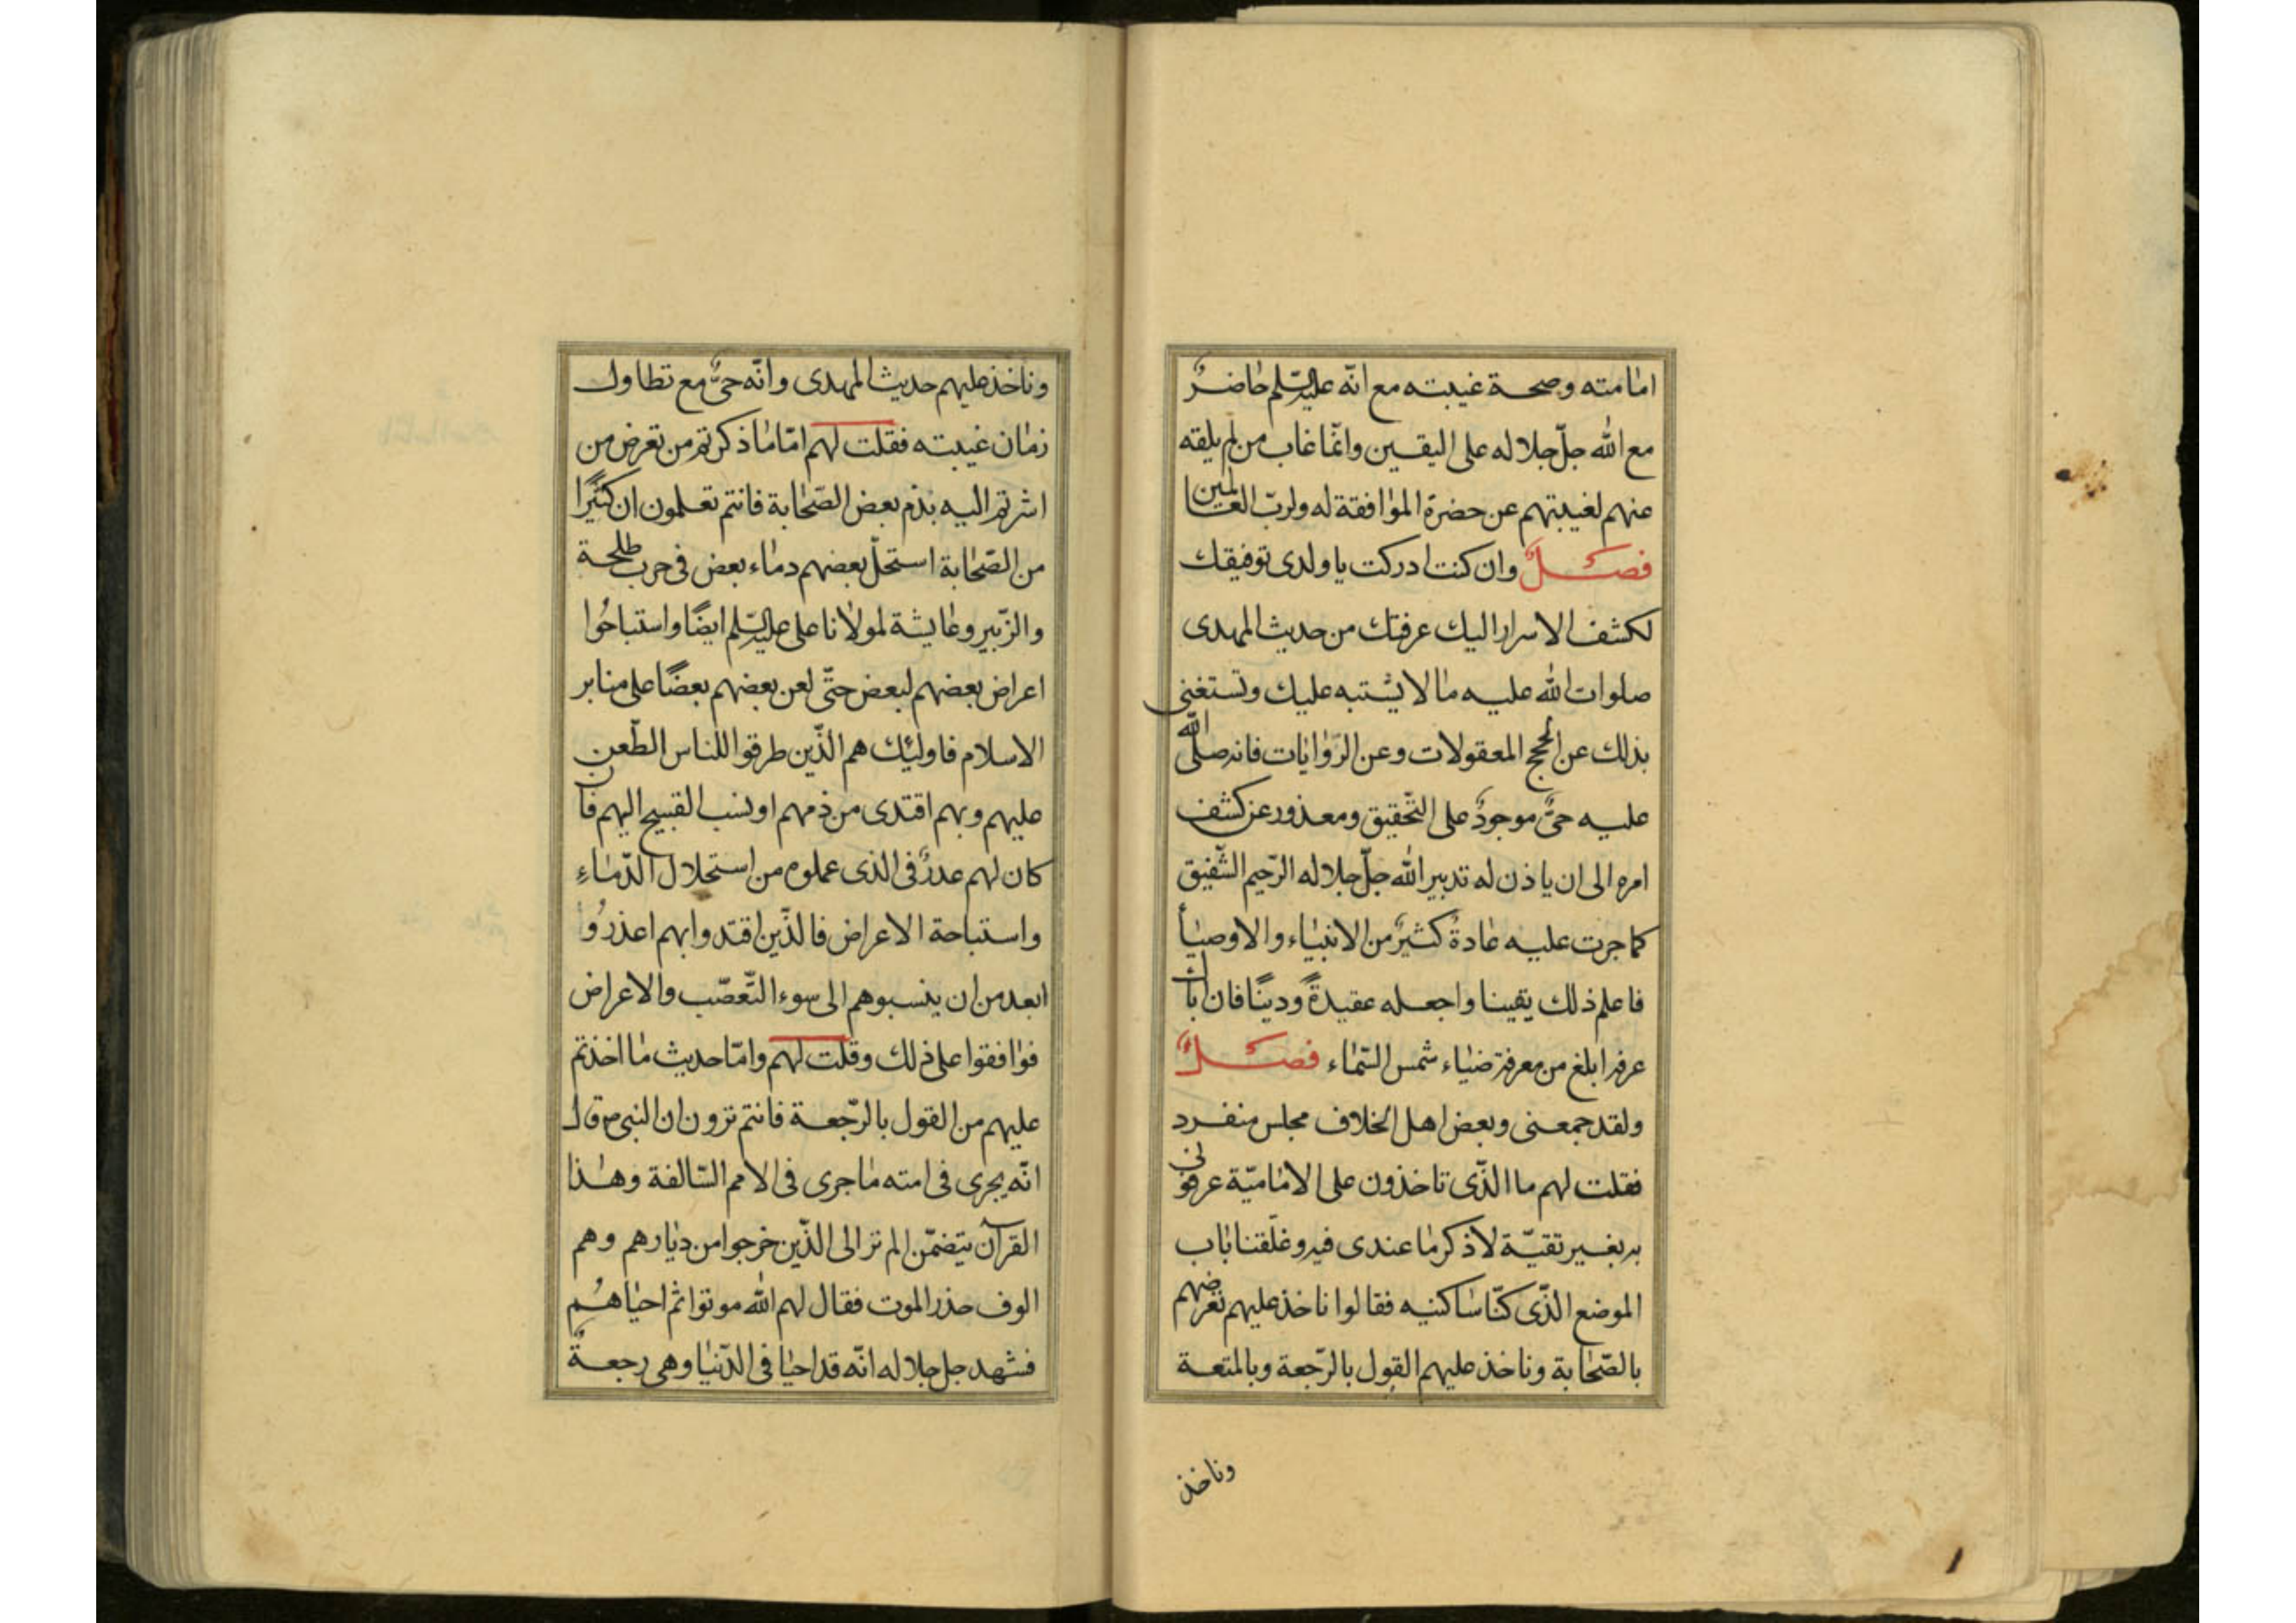 امامته وصحة غيبته مع انّه عليه السّلم حاضرٌ
مع الله جلّ جلاله على اليقين وانّما غاب من لم يلقه
عنهم لغيبتهم عن حضرة الموافقة له ولربّ العالمين
فصلٌ وان كنت ادركت يا ولدى توفيقك
لكشف الاسرار اليك عرفتك من حديث المهدى
صلوات الله عليه ما لا يشتبه عليك وتستغنى
بذلك عن الحجج المعقولات وعن الرّوايات فانه صلى الله
عليه حىٌّ موجودٌ على التّحقيق ومعذور عن كشف
امره الى ان ياذن له تدبير الله جلّ جلاله الرّحيم الشّفيق
كما جرت عليه عادةُ كثيرٌ من الانبياء والاوصيأ
فاعلم ذلك يقينا واجعله عقيدةً ودينًا فان اباك
عرفه ابلغ من معرفة ضياء شمس السّماء فصلٌ
ولقد جمعنى وبعض اهل الخلاف مجلس منفرد
فقلت لهم ما الذّى تاخذون على الاماميّة عرفونى
به بغير تقيّة لاذكر ما عندى فيه وغلّقنا باب
الموضع الذّى كنّا ساكنيه فقالوا ناخذ عليهم تعرضهم
بالصّحابة وناخذ عليهم القول بالرّجعة وبالمتعة
وناخذ
وناخذ عليهم حديث المهدى وانّه حىٌّ مع تطاول
زمان غيبته فقلت لهم امّا ما ذكرتم من تعرض من
اشرتم اليه بذم بعض الصّحابة فانتم تعلمون ان كثيرًا
من الصّحابة استحلّ بعضهم دماء بعض فى حرب طلحة
والزّبير وعايشة لمولانا على عليه السّلم ايضًا واستباحُوا
اعراض بعضهم لبعض حتّى لعن بعضهم بعضًا على منابر
الاسلام فاولئِك هم الذّين طرقوا للناس الطّعن
عليهم وبهم اقتدى من ذمهم او نسب القبيح اليهم فان
كان لهم عدرٌ فى الذى عملوه من استحلال الدّماءِ
واستباحة الاعراض فالذّين اقتدوا بهم اعذرُوا
ابعد من ان ينسبوهم الى سوء التّعصّب والاعراض
فوافقوا على ذلك وقلت لهم وامّا حديث ما اخذتم
عليهم من القول بالرّجعة فانتم تروون ان النبى ص قال
انّه يجرى فى امته ما جرى فى الامم السّالفة وهذا
القرآن يتضمّن الم تر الى الذّين خرجوا من ديارهم وهم
الوف حذر الموت فقال لهم الله موتوا ثم احياهُم
فشهد جل جلاله انّه قد احيا فى الدّنيا وهى رجعةٌ